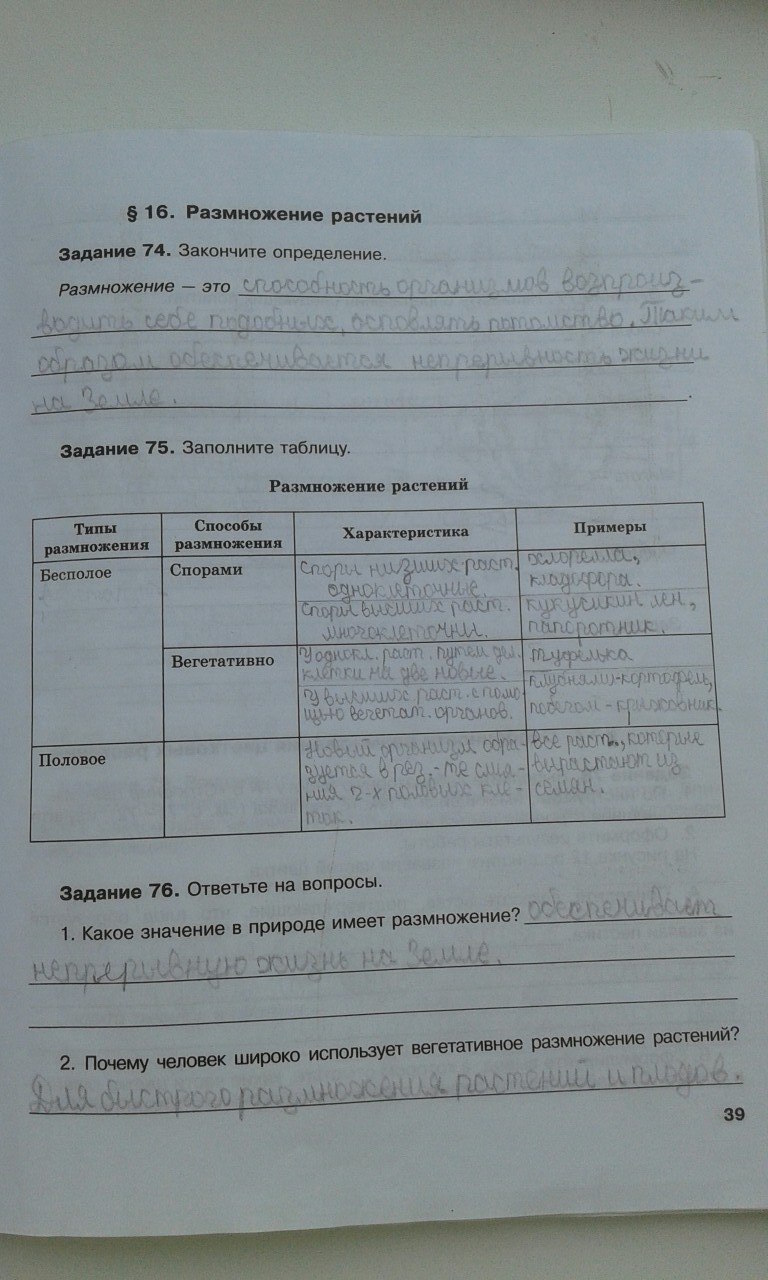 § 16. Размножение растений
Задание 74. Закончите определение.
Размножение — это способность организмов возпроиз-
водить себе подобных, оставлять потомство. Таким
образом обеспечивается непрерывность жизни
на Земле.
Задание 75. Заполните таблицу.
Размножение растений
Типы размножения
Способы размножения
Характеристика
Примеры
Бесполое
Спорами
Споры низших раст.
одноклеточные.
хлорелла,
кладофора.
Споры высших раст.
многоклеточн.
кукушкин лён,
папоротник.
Вегетативно
У однокл. раст. путем дел.
клетки на две новые.
туфелька
У высших раст. с помо
щью вегетат. органов.
клубнями-картофель,
побегом-крыжовник.
Половое
Новый организм обра-
зуется в рез.-те слия-
ния 2-х половых кле-
ток.
все раст., которые
вырастают из
семян.
Задание 76. Ответьте на вопросы.
1. Какое значение в природе имеет размножение? обеспечивает
непрерывную жизнь на Земле.
2. Почему человек широко использует вегетативное размножение растений?
Для быстрого размножения растений и плодов.
39